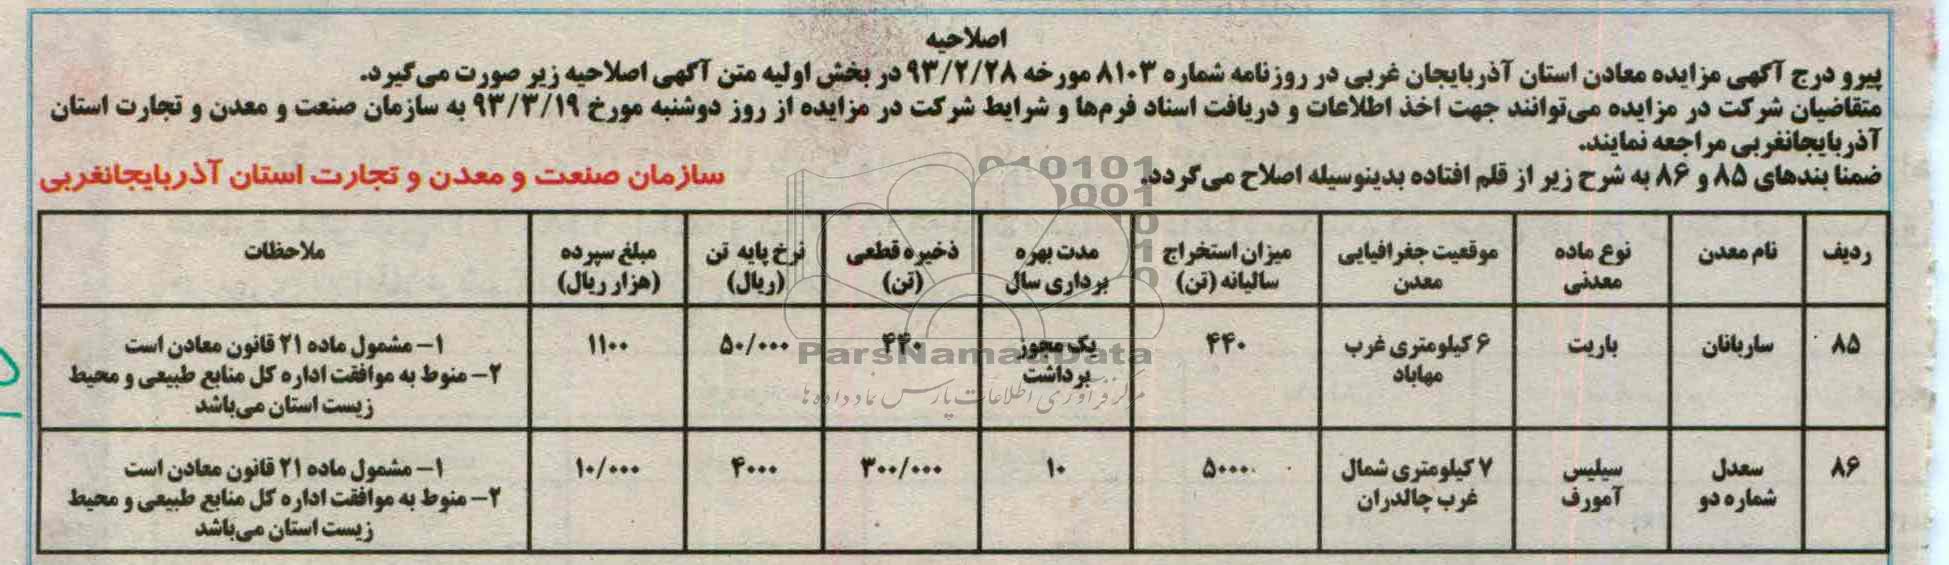 اصلاحیه
پیرو درج آگهی مزایده معادن استان آذربایجان غربی در روزنامه شماره ۸۱۰۳ مورخه ۹۳/۲/۲۸ در بخش اولیه متن آگهی اصلاحیه زیر صورت می‌گیرد.
متقاضیان شرکت در مزایده می‌توانند جهت اخذ اطلاعات و دریافت اسناد فرم‌ها و شرایط شرکت در مزایده از روز دوشنبه مورخ ۹۳/۳/۱۹ به سازمان صنعت و معدن و تجارت استان
آذربایجانغربی مراجعه نمایند.
ضمنا بندهای ۸۵ و ۸۶ به شرح زیر از قلم افتاده بدینوسیله اصلاح می‌گردد.
سازمان صنعت و معدن و تجارت استان آذربایجانغربی
ردیف
نام معدن
نوع ماده
معدنی
موقعیت جغرافیایی
معدن
میزان استخراج
سالیانه (تن)
مدت بهره
برداری سال
ذخیره قطعی
(تن)
نرخ پایه تن
(ریال)
مبلغ سپرده
(هزار ریال)
ملاحظات
۸۵
ساربانان
باریت
۶ کیلومتری غرب
مهاباد
۴۴۰
یک مجوز
برداشت
۴۴۰
۵۰/۰۰۰
۱۱۰۰
۱– مشمول ماده ۲۱ قانون معادن است
۲– منوط به موافقت اداره کل منابع طبیعی و محیط
زیست استان می‌باشد
۸۶
سعدل
شماره دو
سیلیس
آمورف
۷ کیلومتری شمال
غرب چالدران
۵۰۰۰
۱۰
۳۰۰/۰۰۰
۴۰۰۰
۱۰/۰۰۰
۱– مشمول ماده ۲۱ قانون معادن است
۲– منوط به موافقت اداره کل منابع طبیعی و محیط
زیست استان می‌باشد
ParsNamadData
مرکز فرآوری اطلاعات پارس نماد داده ها